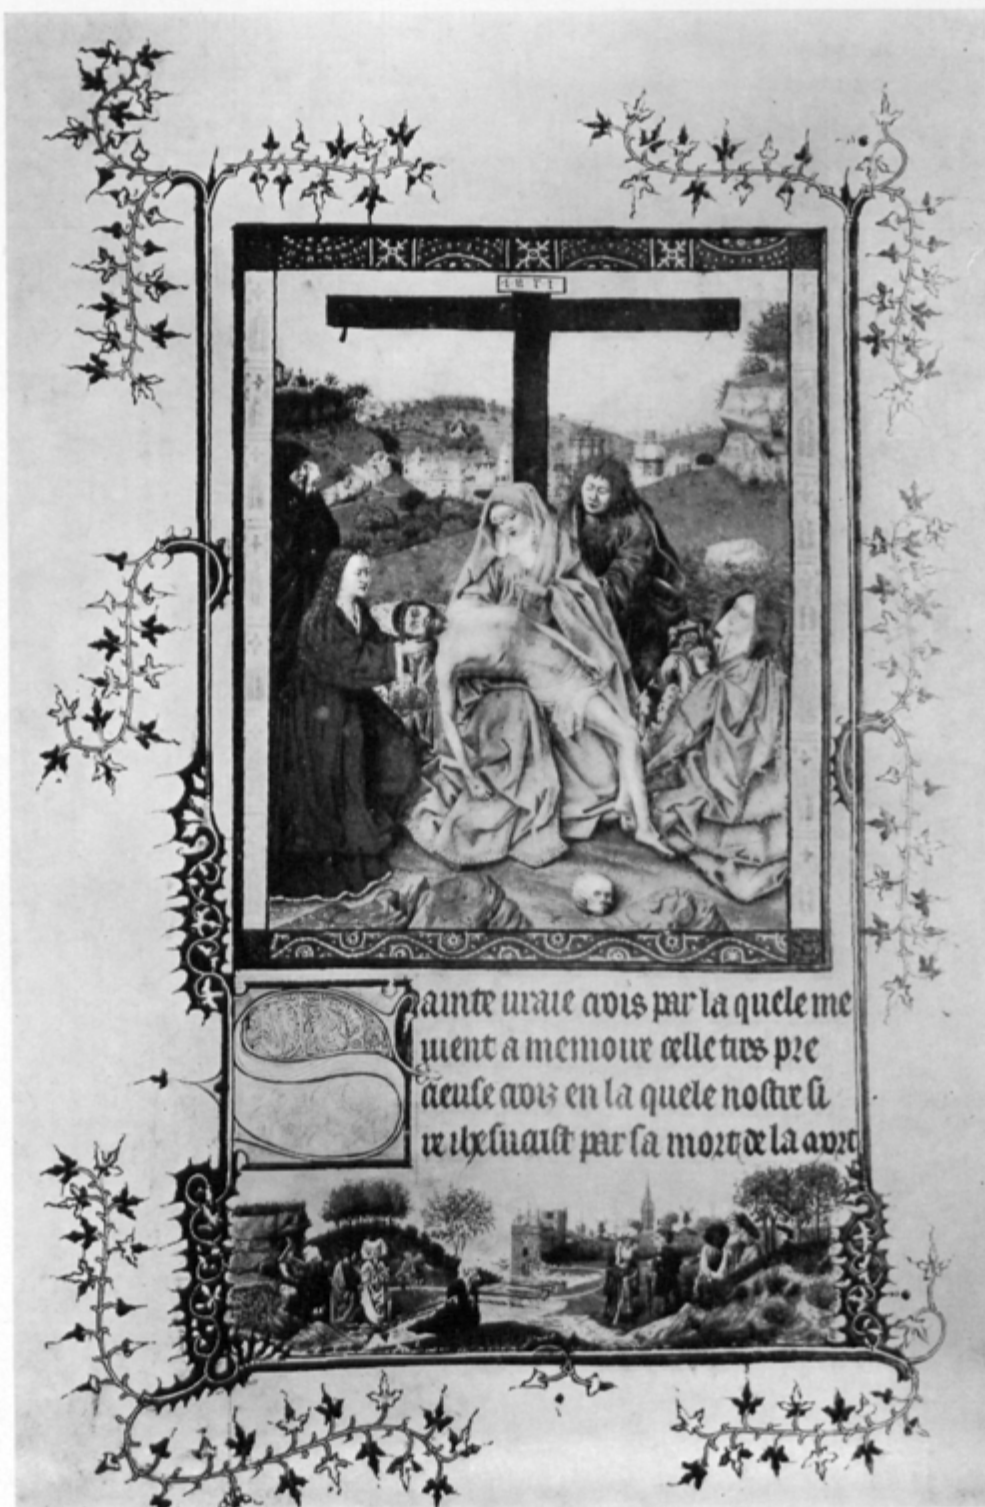 inri
Sainte vraie crois par la quele me
vient a memoire celle tres pre
cieuse croiz en la quele nostre si
re ihesucrist par sa mort de la mort